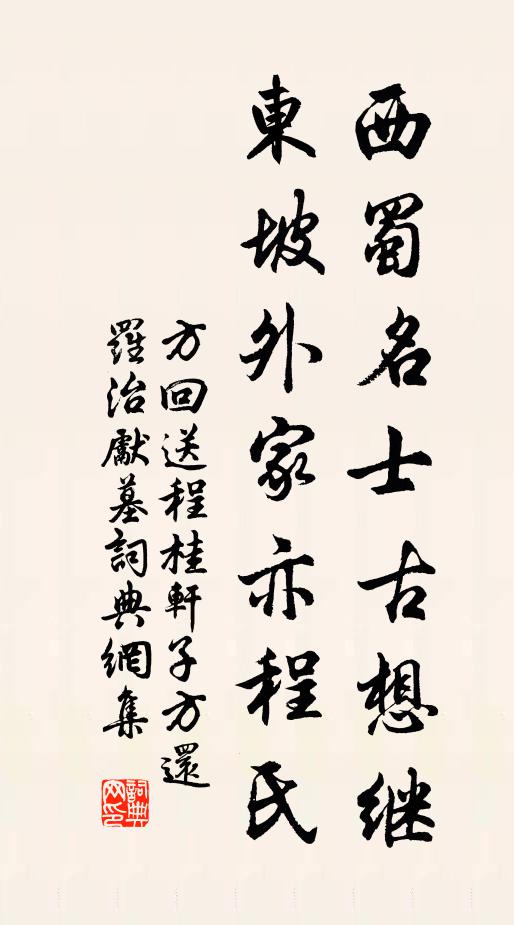 西蜀名士古想继
東坡外家亦程氏
方回送程桂軒子方還
羅治獻墓詞典網集
詞典網印